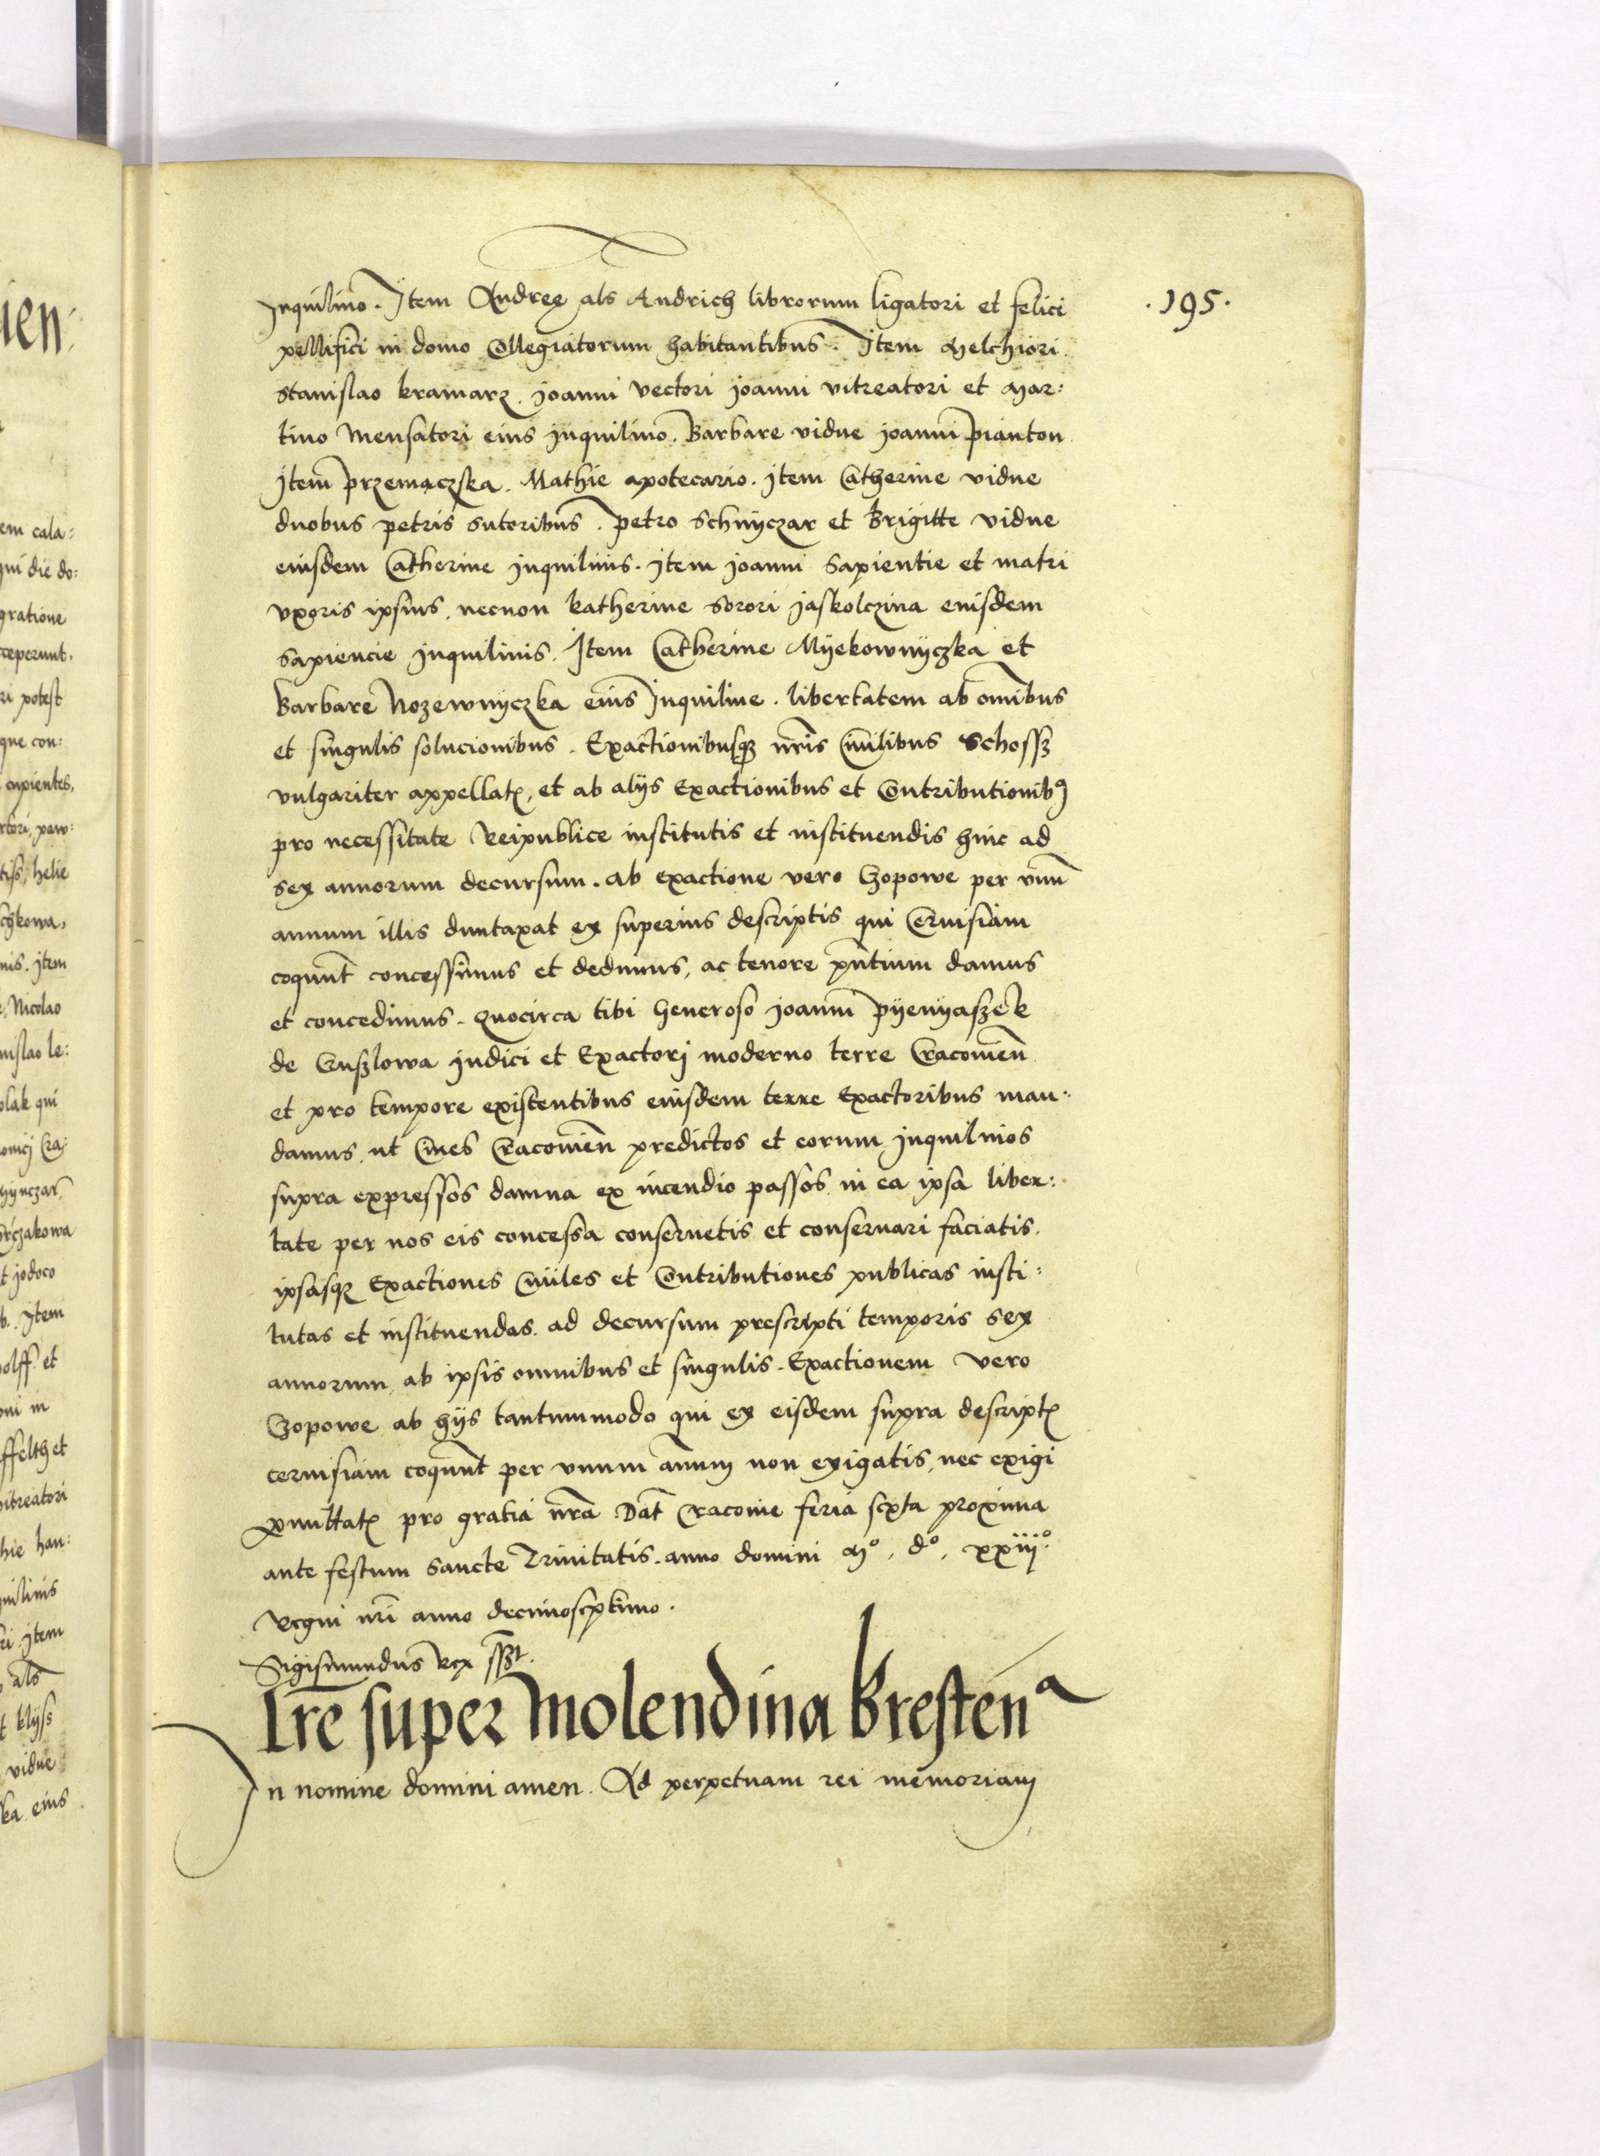 .195.
Inquilino. Item Andreę als Andrich librorum ligatori et felici
pellifici in domo Collegiatorum habitantibus. Item Melchiori.
Stanislao kramarz. Joanni vectori Joanni vitreatori et Mar:
tino Mensatori eius Inquilino. Barbare vidue Joanni Pianton
Item Przemączska. Mathie apotecario. Item Catherine vidue
duobus petris sutoribus. Petro Schnyczar et Brigitte vidue
eiusdem Catherine inquilinis. Item Joanni Sapientie et matri
vxoris ipsius, necnon katherine sorori Jaskolczina eiusdem
Sapiencie Inquilinis. Item Catherine Myekownyczka et
Barbare Nozewnyczka eius Inquiline. libertatem ab omībus
et singulis solucionibus. Exactionibusq; nr̄is Ciuilibus Schossz
vulgariter appellatꝭ, et ab alijs Exactionibus et Contributionibꝰ
pro necessitate Reipublice institutis et instituendis hinc ad
sex annorum decursum. Ab exactione vero Czopowe per vnū
annum illis duntaxat ex superius descriptis qui Ceruisiam
coquunt concessimus et dedimus, ac tenore pn̄tium damus
et concedimus. Quocirca tibi Generoso Joanni Pyenyaszek
de Gruszlowa Judici et Exactori moderno terre Cracouien̄
et pro tempore existentibus eiusdem terre Exactoribus man:
damus, ut Ciues Cracouien̄ predictos et eorum inquilinos
supra expressos damna ex incendio passos in ea ipsa liber:
tate per nos eis concessa conseruetis et conseruari faciatis.
ipsasq; Exactiones Ciuiles et Contributiones publicas insti:
tutas et instituendas. ad decursum prescripti temporis sex
annorum, ab ipsis omnibus et singulis. Exactionem vero
Czopowe ab hijs tantummodo qui ex eisdem supra descriptꝭ
ceruisiam coquunt per vnum annum non exigatis, nec exigi
ꝑmittatꝭ pro gratia nr̄a Dat̄ Cracouie feria sexta proxima
ante festum Sancte Trinitatis. anno domini Mº. dº. xxiijº.
Regni nr̄i anno decimoseptimo.
Sigismundus Rex sszt.
Lr̄e super Molendina Bresten̄ᵃ
In nomine domini amen. Ad perpetuam rei memoriam